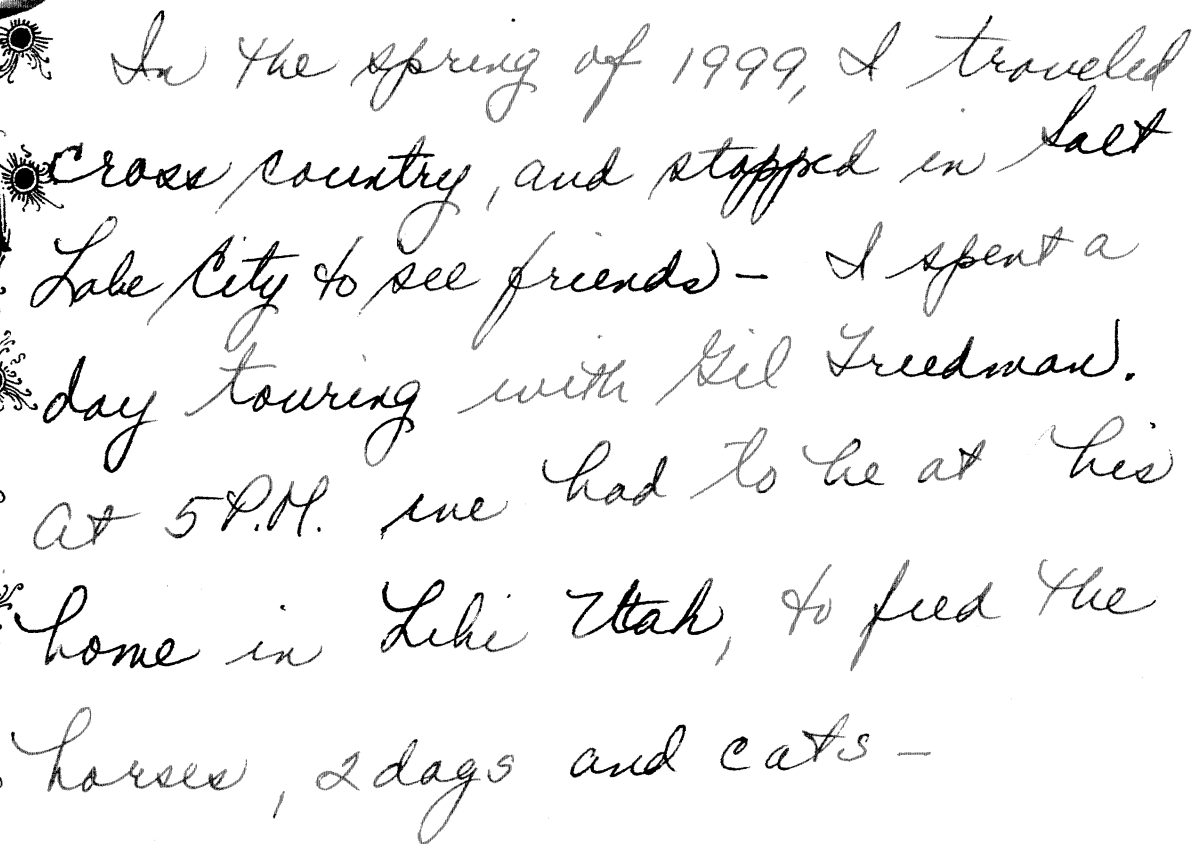 In the spring of 1999, I traveled
cross country, and stopped in Salt
Lake City to see friends - I spent a
day touring with Gil Freedman.
At 5 P.M. we had to be at his
home in Lehi Utah, to feed the
horses, 2 dogs and cats -